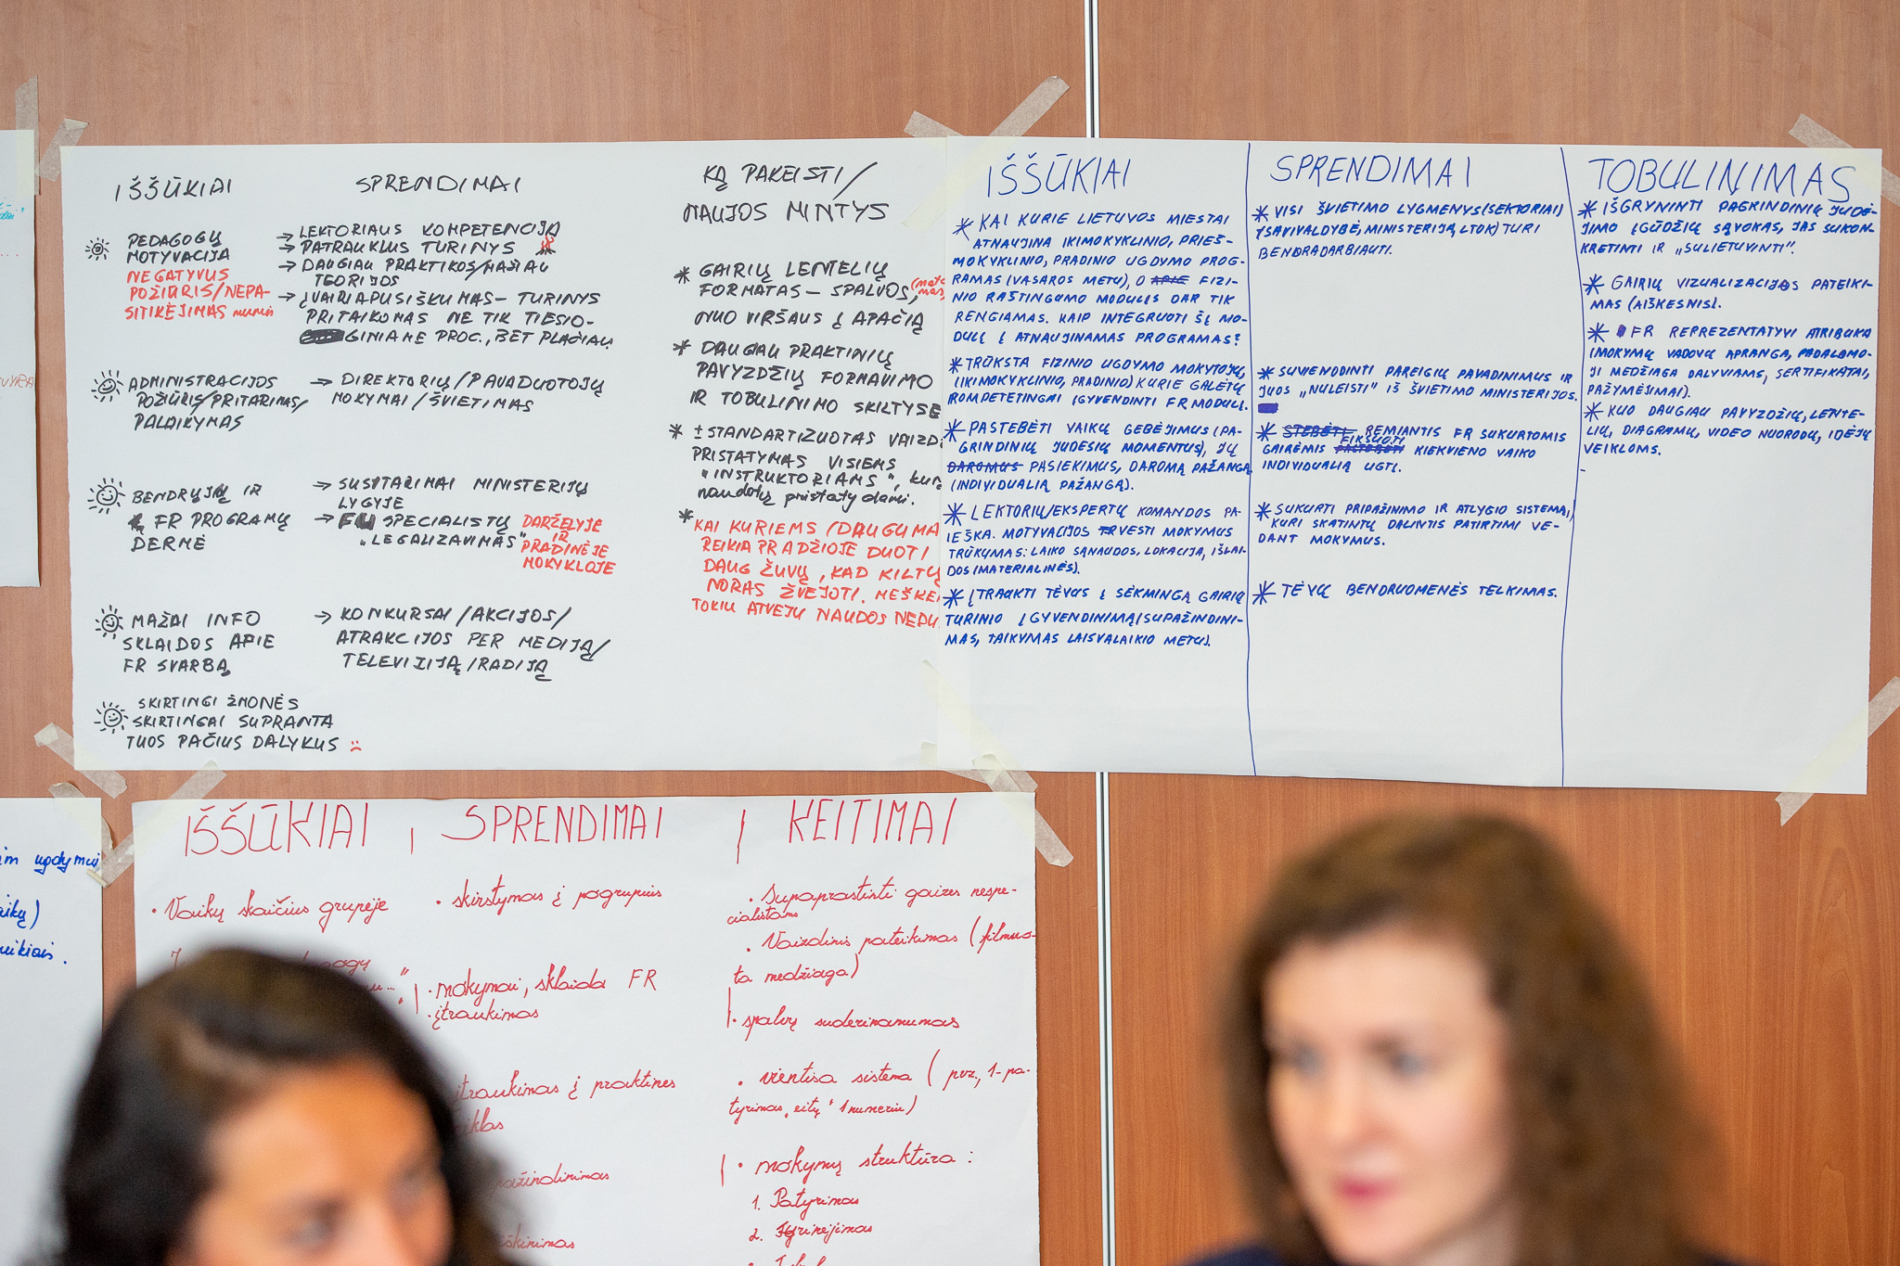 IŠŠŪKIAI
PEDAGOGŲ
MOTYVACIJA
NEGATYVUS
POŽIŪRIS/NEPA-
SITIKĖJIMAS
ADMINISTRACIJOS
POŽIŪRIS/PRITARIMAS/
PALAIKYMAS
BENDRŲJŲ IR
FR PROGRAMŲ
DERMĖ
MAŽAI INFO
SKLAIDOS APIE
FR SVARBĄ
SKIRTINGI ŽMONĖS
SKIRTINGAI SUPRANTA
TUOS PAČIUS DALYKUS
SPRENDIMAI
→ LEKTORIAUS KOMPETENCIJA
→ PATRAUKLUS TURINYS
→ DAUGIAU PRAKTIKOS/MAŽIAU
TEORIJOS
→ ĮVAIRIAPUSIŠKUMAS – TURINYS
PRITAIKOMAS NE TIK TIESIO-
GINIAME PROC., BET PLAČIAU
→ DIREKTORIŲ/PAVADUOTOJŲ
MOKYMAI/ŠVIETIMAS
→ SUSITARIMAI MINISTERIJŲ
LYGYJE
→ SPECIALISTŲ DARŽELYJE
„LEGALIZAVIMAS" IR
PRADINĖJE
MOKYKLOJE
→ KONKURSAI/AKCIJOS/
ATRAKCIJOS PER MEDIJĄ/
TELEVIZIJĄ/RADIJĄ
KĄ PAKEISTI/
NAUJOS MINTYS
* GAIRIŲ LENTELIŲ
FORMATAS – SPALVOS,
NUO VIRŠAUS Į APAČIĄ
* DAUGIAU PRAKTINIŲ
PAVYZDŽIŲ FORMAVIMO
IR TOBULINIMO SKILTYSE
* ± STANDARTIZUOTAS
PRISTATYMAS VISIEMS
„INSTRUKTORIAMS",
naudotų pristatydami.
* KAI KURIEMS (DAUGUMA
REIKIA PRADŽIOJE DUOTI
DAUG ŽUVŲ, KAD KILTŲ
NORAS ŽVEJOTI.
TOKIU ATVEJU NAUDOS
IŠŠŪKIAI
* KAI KURIE LIETUVOS MIESTAI
ATNAUJINA IKIMOKYKLINIO, PRIEŠ-
MOKYKLINIO, PRADINIO UGDYMO PROG-
RAMAS (VASAROS METU), O APIE FIZI-
NIO RAŠTINGUMO MODULIS DAR TIK
RENGIAMAS. KAIP INTEGRUOTI ŠĮ MO-
DULĮ Į ATNAUJINAMAS PROGRAMAS?
* TRŪKSTA FIZINIO UGDYMO MOKYTOJŲ
(IKIMOKYKLINIO, PRADINIO) KURIE GALĖTŲ
KOMPETETINGAI ĮGYVENDINTI FR MODULĮ.
* PASTEBĖTI VAIKŲ GEBĖJIMUS (PA-
GRINDINIŲ JUDESIŲ MOMENTUS), JŲ
DAROMUS PASIEKIMUS, DAROMĄ PAŽANGĄ
(INDIVIDUALIĄ PAŽANGĄ).
* LEKTORIŲ/EKSPERTŲ KOMANDOS PA-
IEŠKA. MOTYVACIJOS VESTI MOKYMUS
TRŪKUMAS: LAIKO SĄNAUDOS, LOKACIJA, IŠLAI-
DOS (MATERIALINĖS).
* ĮTRAUKTI TĖVUS Į SĖKMINGĄ GAIRIŲ
TURINIO ĮGYVENDINIMĄ (SUPAŽINDINI-
MAS, TAIKYMAS LAISVALAIKIO METU).
SPRENDIMAI
* VISI ŠVIETIMO LYGMENYS (SEKTORIAI)
(SAVIVALDYBĖ, MINISTERIJA, LTOK) TURI
BENDRADARBIAUTI.
* SUVIENODINTI PAREIGIŲ PAVADINIMUS IR
JUOS „NULEISTI" IŠ ŠVIETIMO MINISTERIJOS.
* STEBĖTI REMIANTIS FR SUKURTOMIS
GAIRĖMIS FIKSUOTI KIEKVIENO VAIKO
INDIVIDUALIĄ ŪGTĮ.
* SUKURTI PRIPAŽINIMO IR ATLYGIO SISTEMĄ,
KURI SKATINTŲ DALINTIS PATIRTIMI VE-
DANT MOKYMUS.
* TĖVŲ BENDRUOMENĖS TELKIMAS.
TOBULINIMAS
* IŠGRYNINTI PAGRINDINIŲ JUDĖ-
JIMO ĮGŪDŽIŲ SĄVOKAS, JAS SUKON-
KRETINTI IR „SULIETUVINTI".
* GAIRIŲ VIZUALIZACIJOS PATEIKI-
MAS (AIŠKESNIS).
* FR REPREZENTATYVI ATRIBUKA
(MOKYMŲ VADOVŲ APRANGA, PADALOMO-
JI MEDŽIAGA DALYVIAMS, SERTIFIKATAI,
PAŽYMĖJIMAI).
* KUO DAUGIAU PAVYZDŽIŲ, LENTE-
LIŲ, DIAGRAMŲ, VIDEO NUORODŲ, IDĖJŲ
VEIKLOMS.
IŠŠŪKIAI
• Vaikų skaičius grupėje
SPRENDIMAI
• skirstymas į pogrupius
• mokymai, sklaida FR
• įtraukimas
įtraukimas į praktines
KEITIMAI
• Supaprastinti gaires nespe-
cialistams
• Vaizdinis pateikimas (filmuo-
ta medžiaga)
• spalvų suderinamumas
• vientisa sistema (pvz., 1-pa-
tyrimas, eitų 1 numeriu)
• mokymų struktūra:
1. Patyrimas
2. Tyrinėjimas
ugdymui